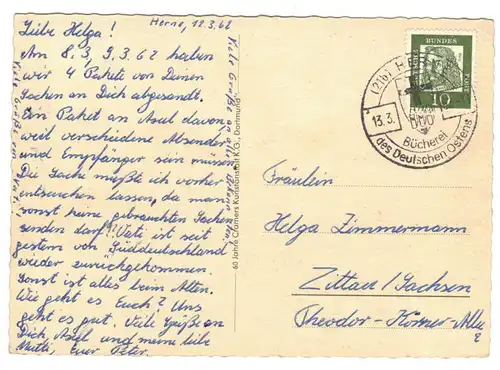 Herne, 12.3.62
Liebe Helga!
Am 8.3., 9.3.62 haben
wir 4 Pakete von Deinen
Sachen an Dich abgesandt.
Ein Paket an Axel davon,
weil verschiedene Absender
und Empfänger sein müssen.
Die Sache mußte ich vorher
entseuchen lassen, da man
sonst keine gebrauchten Sachen
senden darf! Vati ist seit
gestern von Süddeutschland
wieder zurückgekommen.
Sonst ist alles beim Alten.
Wie geht es Euch? Uns
geht es gut. Viele Grüße an
Dich, Axel und meine liebe
Mutti, Euer Peter.
Viele Grüße an alle
Viele Grüße von
60 Jahre Cramers Kunstanstalt K.G., Dortmund
DEUTSCHE BUNDESPOST
10
(21b) HERNE
13.3.
Bücherei
des Deutschen Ostens
Fräulein
Helga Zimmermann
Zittau/Sachsen
Theodor-Körner-Allee